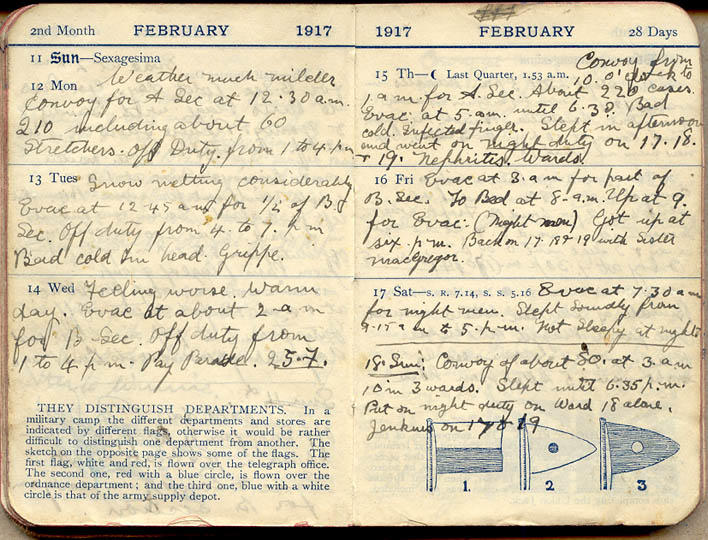 2nd Month FEBRUARY 1917
11 Sun—Sexagesima
12 Mon Weather much milder
Convoy for A Sec at 12.30 a.m.
210 including about 60
Stretchers. Off Duty. from 1 to 4 p.m
13 Tues Snow melting considerably
Evac at 12 45 a m for 1/2 of B
Sec. Off duty from 4. to 7. p.m
Bad cold in head. Grippe.
14 Wed Feeling worse. Warm
day. Evac at about 2 a m
for B Sec. Off duty from
1 to 4 p.m. Pay Parade. 25.7.
THEY DISTINGUISH DEPARTMENTS. In a
military camp the different departments and stores are
indicated by different flags, otherwise it would be rather
difficult to distinguish one department from another. The
sketch on the opposite page shows some of the flags. The
first flag, white and red, is flown over the telegraph office.
The second one, red with a blue circle, is flown over the
ordnance department; and the third one, blue with a white
circle is that of the army supply depot.
1917 FEBRUARY 28 Days
Convoy from
15 Th—☾ Last Quarter, 1.53 a.m. 10. O'clock to
1 a m for A. Sec. About 220 cases.
Evac. at 5 a.m. until 6.30. Bad
cold. Infected finger. Slept in afternoon
and went on night duty on 17. 18.
+ 19. Nephritis Wards.
16 Fri Evac at 3. a m for part of
B. Sec. To Bed at 8 a.m. Up at 9.
for Evac. (Night men) Got up at
six p.m. Back on 17 18 + 19 with Sister
MacGregor.
17 Sat—S. R. 7.14, S. S. 5.16 Evac at 7.30 a m
for night men. Slept soundly from
9.15 a m to 5 p.m. Not sleepy at night
18. Sun: Convoy of about 80. at 3. a m
10 in 3 wards. Slept until 6.35 p.m.
Put on night duty on Ward 18 alone.
Jenkins on 17 & 19
1. 2 3